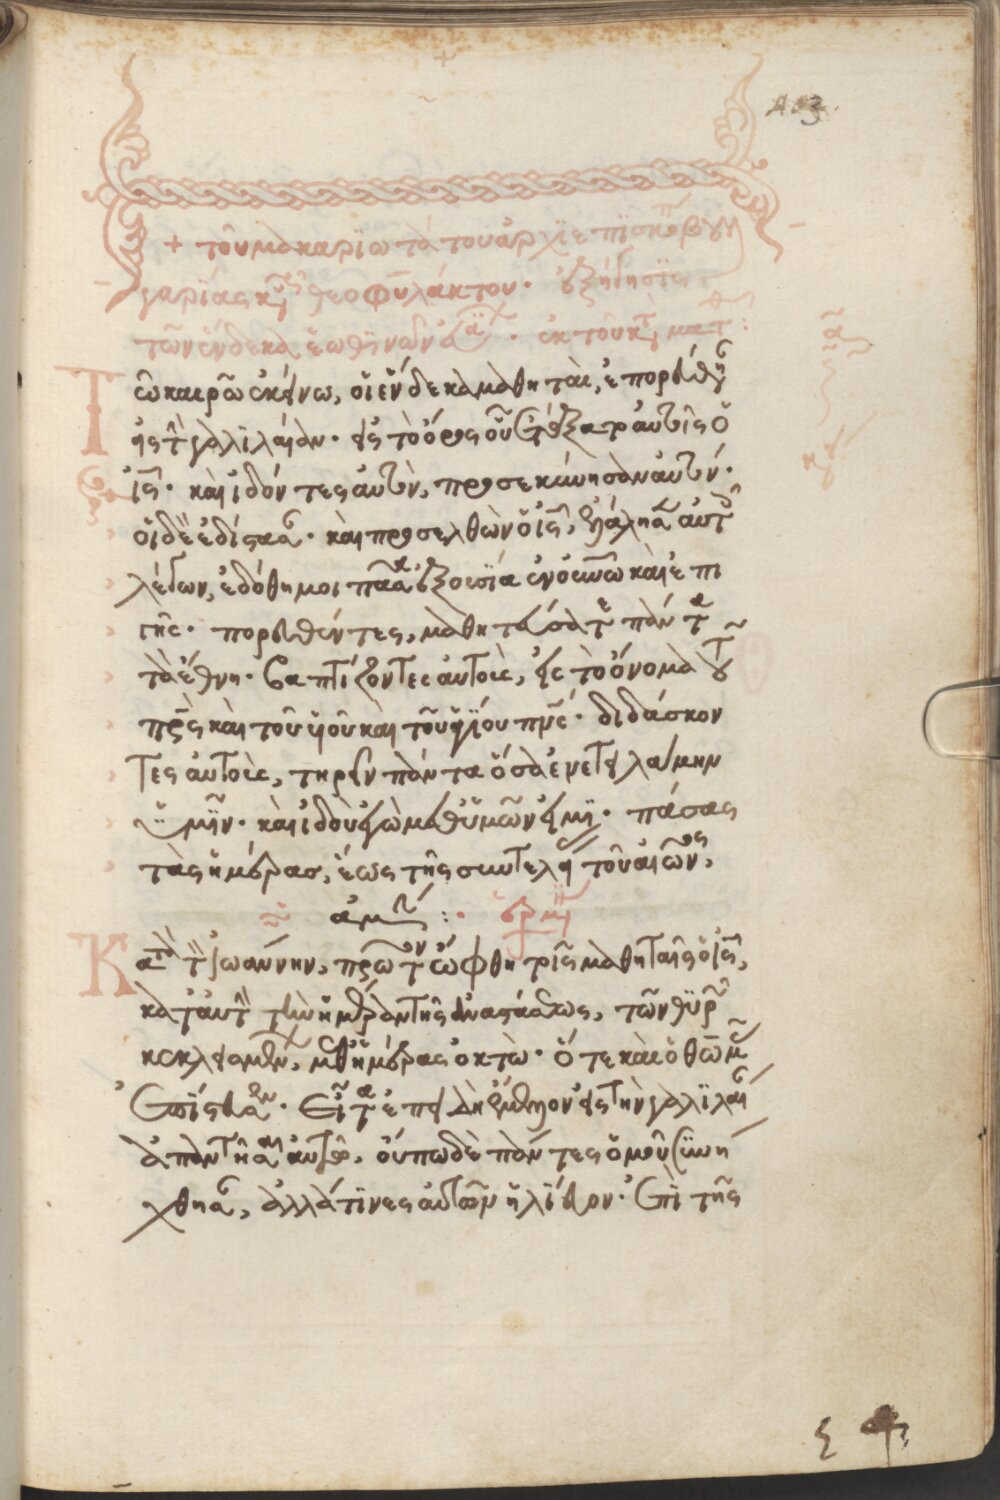 + τοῦ μακαριωτά του ἀρχιεπισκόπ βουλ
γαρίας κυ θεοφυλάκτου. ἐξήγησις
τῶν ἕνδεκα ἑωθινῶν. ἐκ τοῦ κτ ματθ:
Τῶ καιρῶ ἐκείνω, οἱ ἕνδεκα μαθηταὶ, ἐπορεύθησ
εἰς τ γαλιλαίαν. εἰς τὸ ὄρος οὗ ἐτάξατο αὐτοῖς ὁ
ις. καὶ ἰδόντες αὐτὸν, προσεκύνησαν αὐτόν.
οἱ δὲ ἐδίστασ. καὶ προσελθὼν ὁ ις, ἐλάλησ αὐτ
λέγων, ἐδόθη μοι πᾶσα ἐξουσία ἐν οὐνῶ καὶ ἐπι
γῆς. πορευθέντες, μαθητεύσατε πάντα
τὰ ἔθνη. βαπτίζοντες αὐτοὺς, εἰς τὸ ὄνομα τοῦ
πρς καὶ τοῦ υἱοῦ καὶ τοῦ ἁγίου πνς. διδάσκον
τες αὐτοὺς, τηρεῖν πάντα ὅσα ἐνετειλάμην
ὑμῖν. καὶ ἰδοὺ ἐγὼ μεθ ὑμῶν εἰμὶ. πάσας
τὰς ἡμέρας, ἕως τῆς συντελεί τοῦ αἰῶνος,
ἀμήν:. ἑρμ
Κατὰ τ ἰωάννην, πρῶτον ὤφθη τοῖς μαθηταῖς ὁ ις,
κατ αὐτὴν τὴν ἡμέραν τῆς ἀναστάσεως, τῶν θυρ
κεκλεισμένων, μεθ ἡμέρας ὀκτὼ. ὅτε καὶ ὁ θωμς
ἐπίστευσεν. εἶτα ἐπειδὴ ἔμελλον εἰς τὴν γαλιλαί
ἀπαντῆσαι αὐτῶ, οὔπω δὲ πάντες ὁμοῦ συνή
χθησ, ἀλλά τινες αὐτῶν ἦλθον. ἐπὶ τῆς